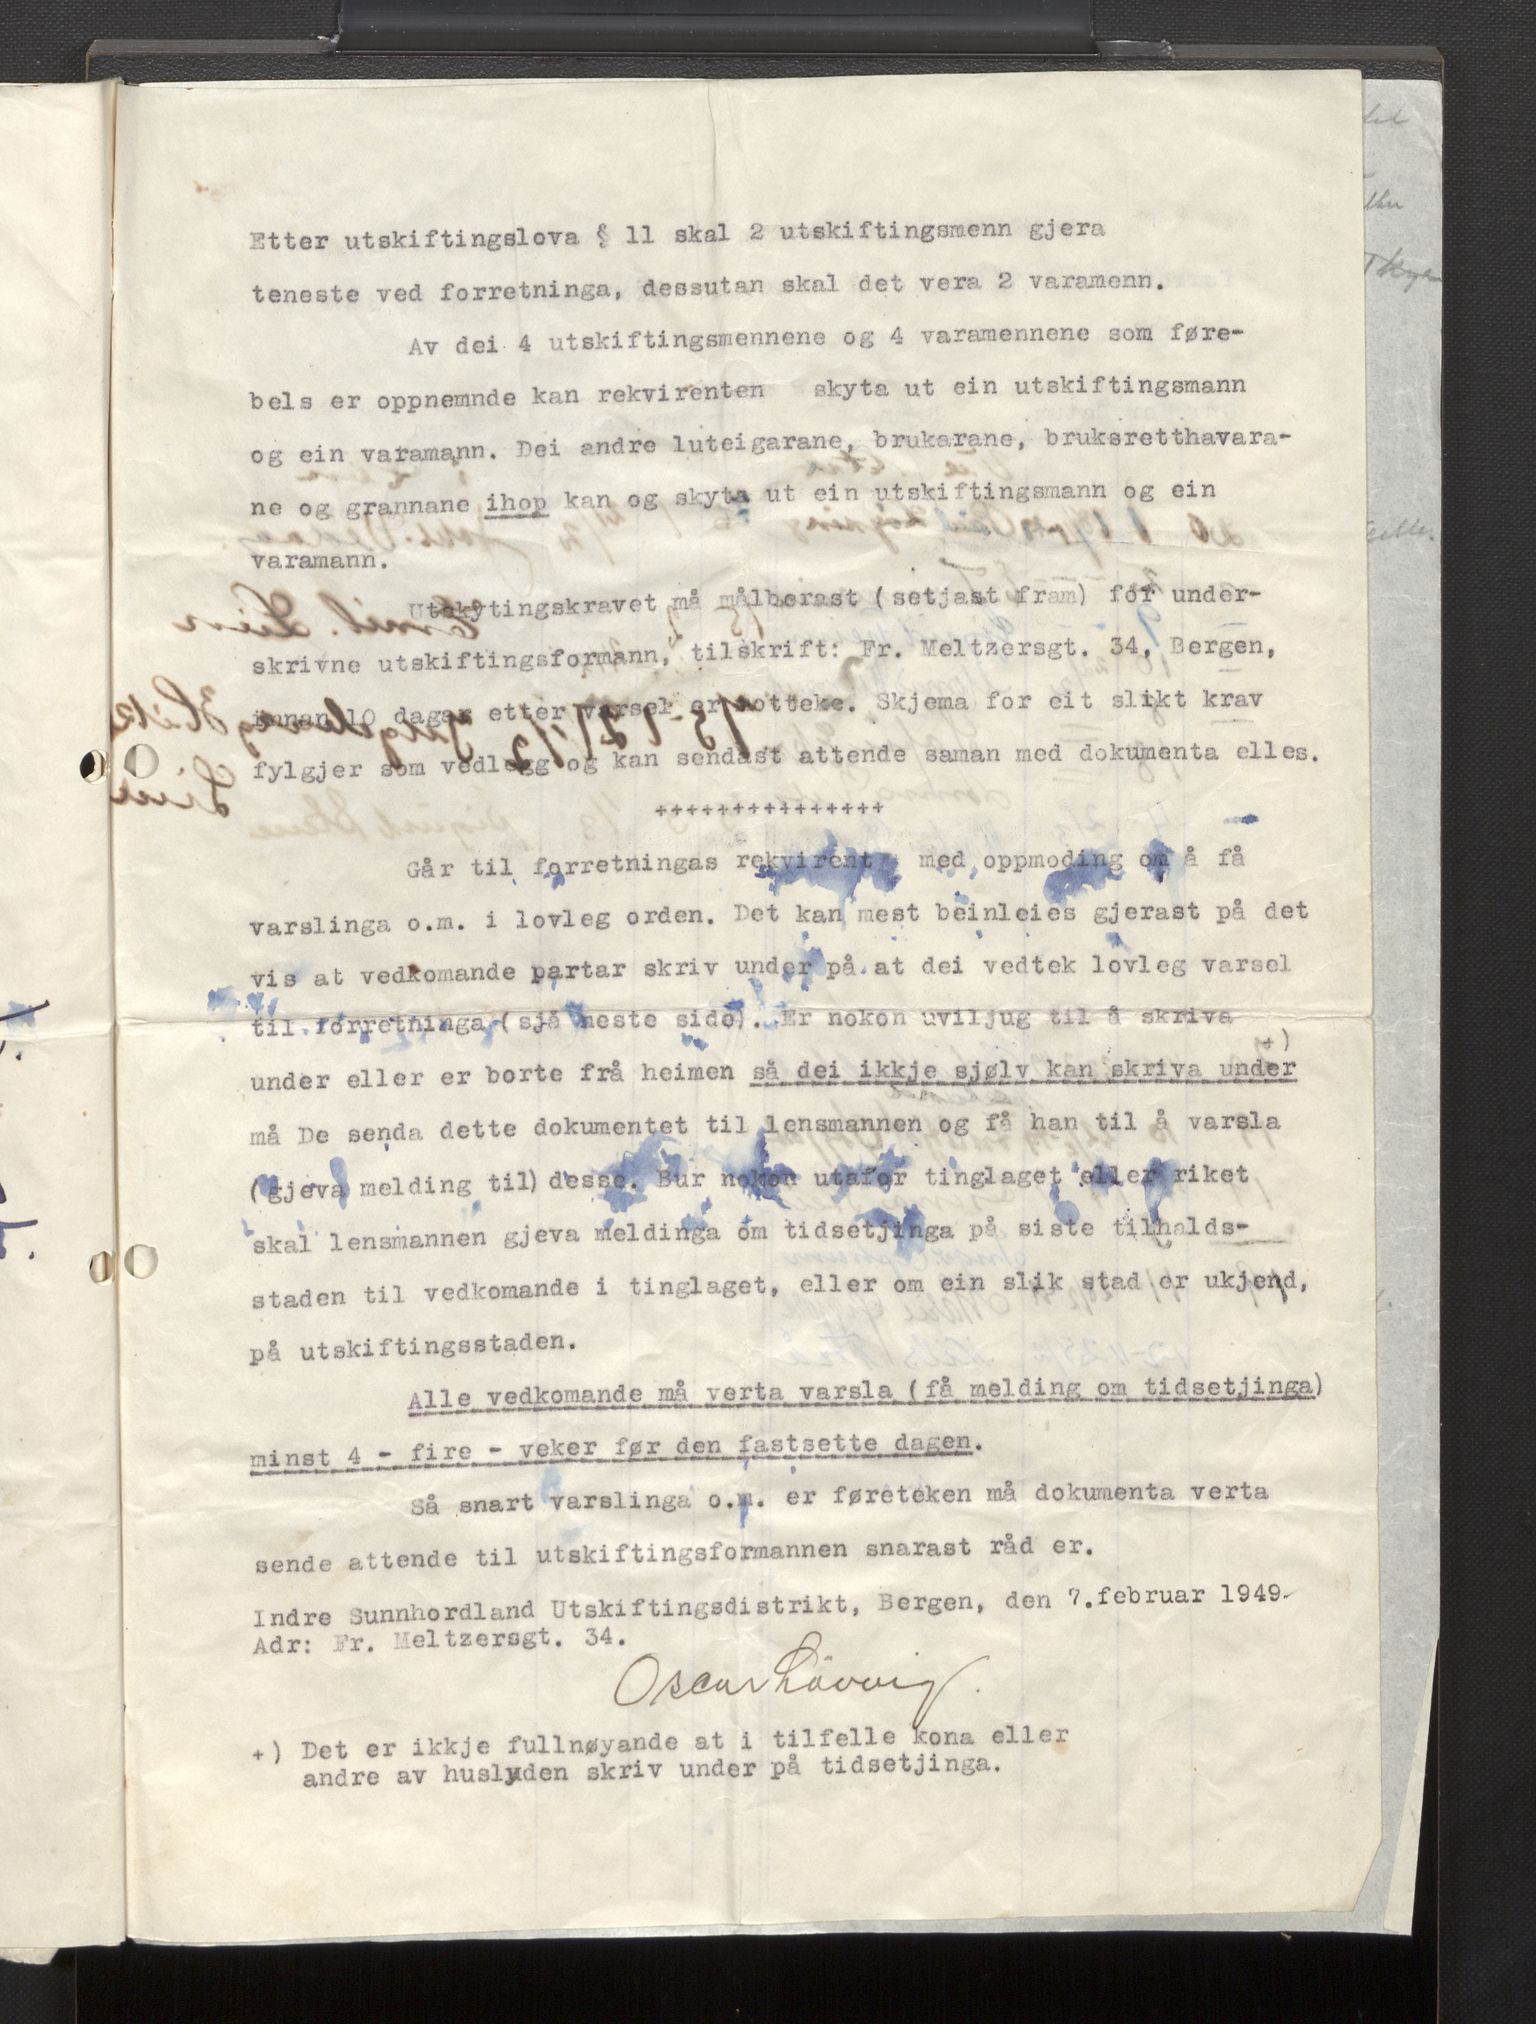 Etter utskiftingslova § 11 skal 2 utskiftingsmenn gjera
teneste ved forretninga, dessutan skal det vera 2 varamenn.
Av dei 4 utskiftingsmennene og 4 varamennene som føre-
bels er oppnemnde kan rekvirenten skyta ut ein utskiftingsmann
og ein varamann. Dei andre luteigarane, brukarane, bruksretthavara-
ne og grannane ihop kan og skyta ut ein utskiftingsmann og ein
varamann.
Utskytingskravet må målberast (setjast fram) for under-
skrivne utskiftingsformann, tilskrift: Fr. Meltzersgt. 34, Bergen,
innan 10 dagar etter varsel er motteke. Skjema for eit slikt krav
fylgjer som vedlegg og kan sendast attende saman med dokumenta elles.
+++++++++++++++
Går til forretningas rekvirent med oppmoding om å få
varslinga o.m. i lovleg orden. Det kan mest beinleies gjerast på det
vis at vedkomande partar skriv under på at dei vedtek lovleg varsel
til forretninga (sjå neste side). Er nokon uviljug til å skriva
+)
under eller er borte frå heimen så dei ikkje sjølv kan skriva under
må De senda dette dokumentet til lensmannen og få han til å varsla
(gjeva melding til) desse. Bur nokon utafor tinglaget eller riket
skal lensmannen gjeva meldinga om tidsetjinga på siste tilhalds-
staden til vedkomande i tinglaget, eller om ein slik stad er ukjend,
på utskiftingsstaden.
Alle vedkomande må verta varsla (få melding om tidsetjinga)
minst 4 - fire - veker før den fastsette dagen.
Så snart varslinga o.m. er føreteken må dokumenta verta
sende attende til utskiftingsformannen snarast råd er.
Indre Sunnhordland Utskiftingsdistrikt, Bergen, den 7.februar 1949.
Adr: Fr. Meltzersgt. 34.
Oscar Lövvig
+) Det er ikkje fullnøyande at i tilfelle kona eller
andre av huslyden skriv under på tidsetjinga.